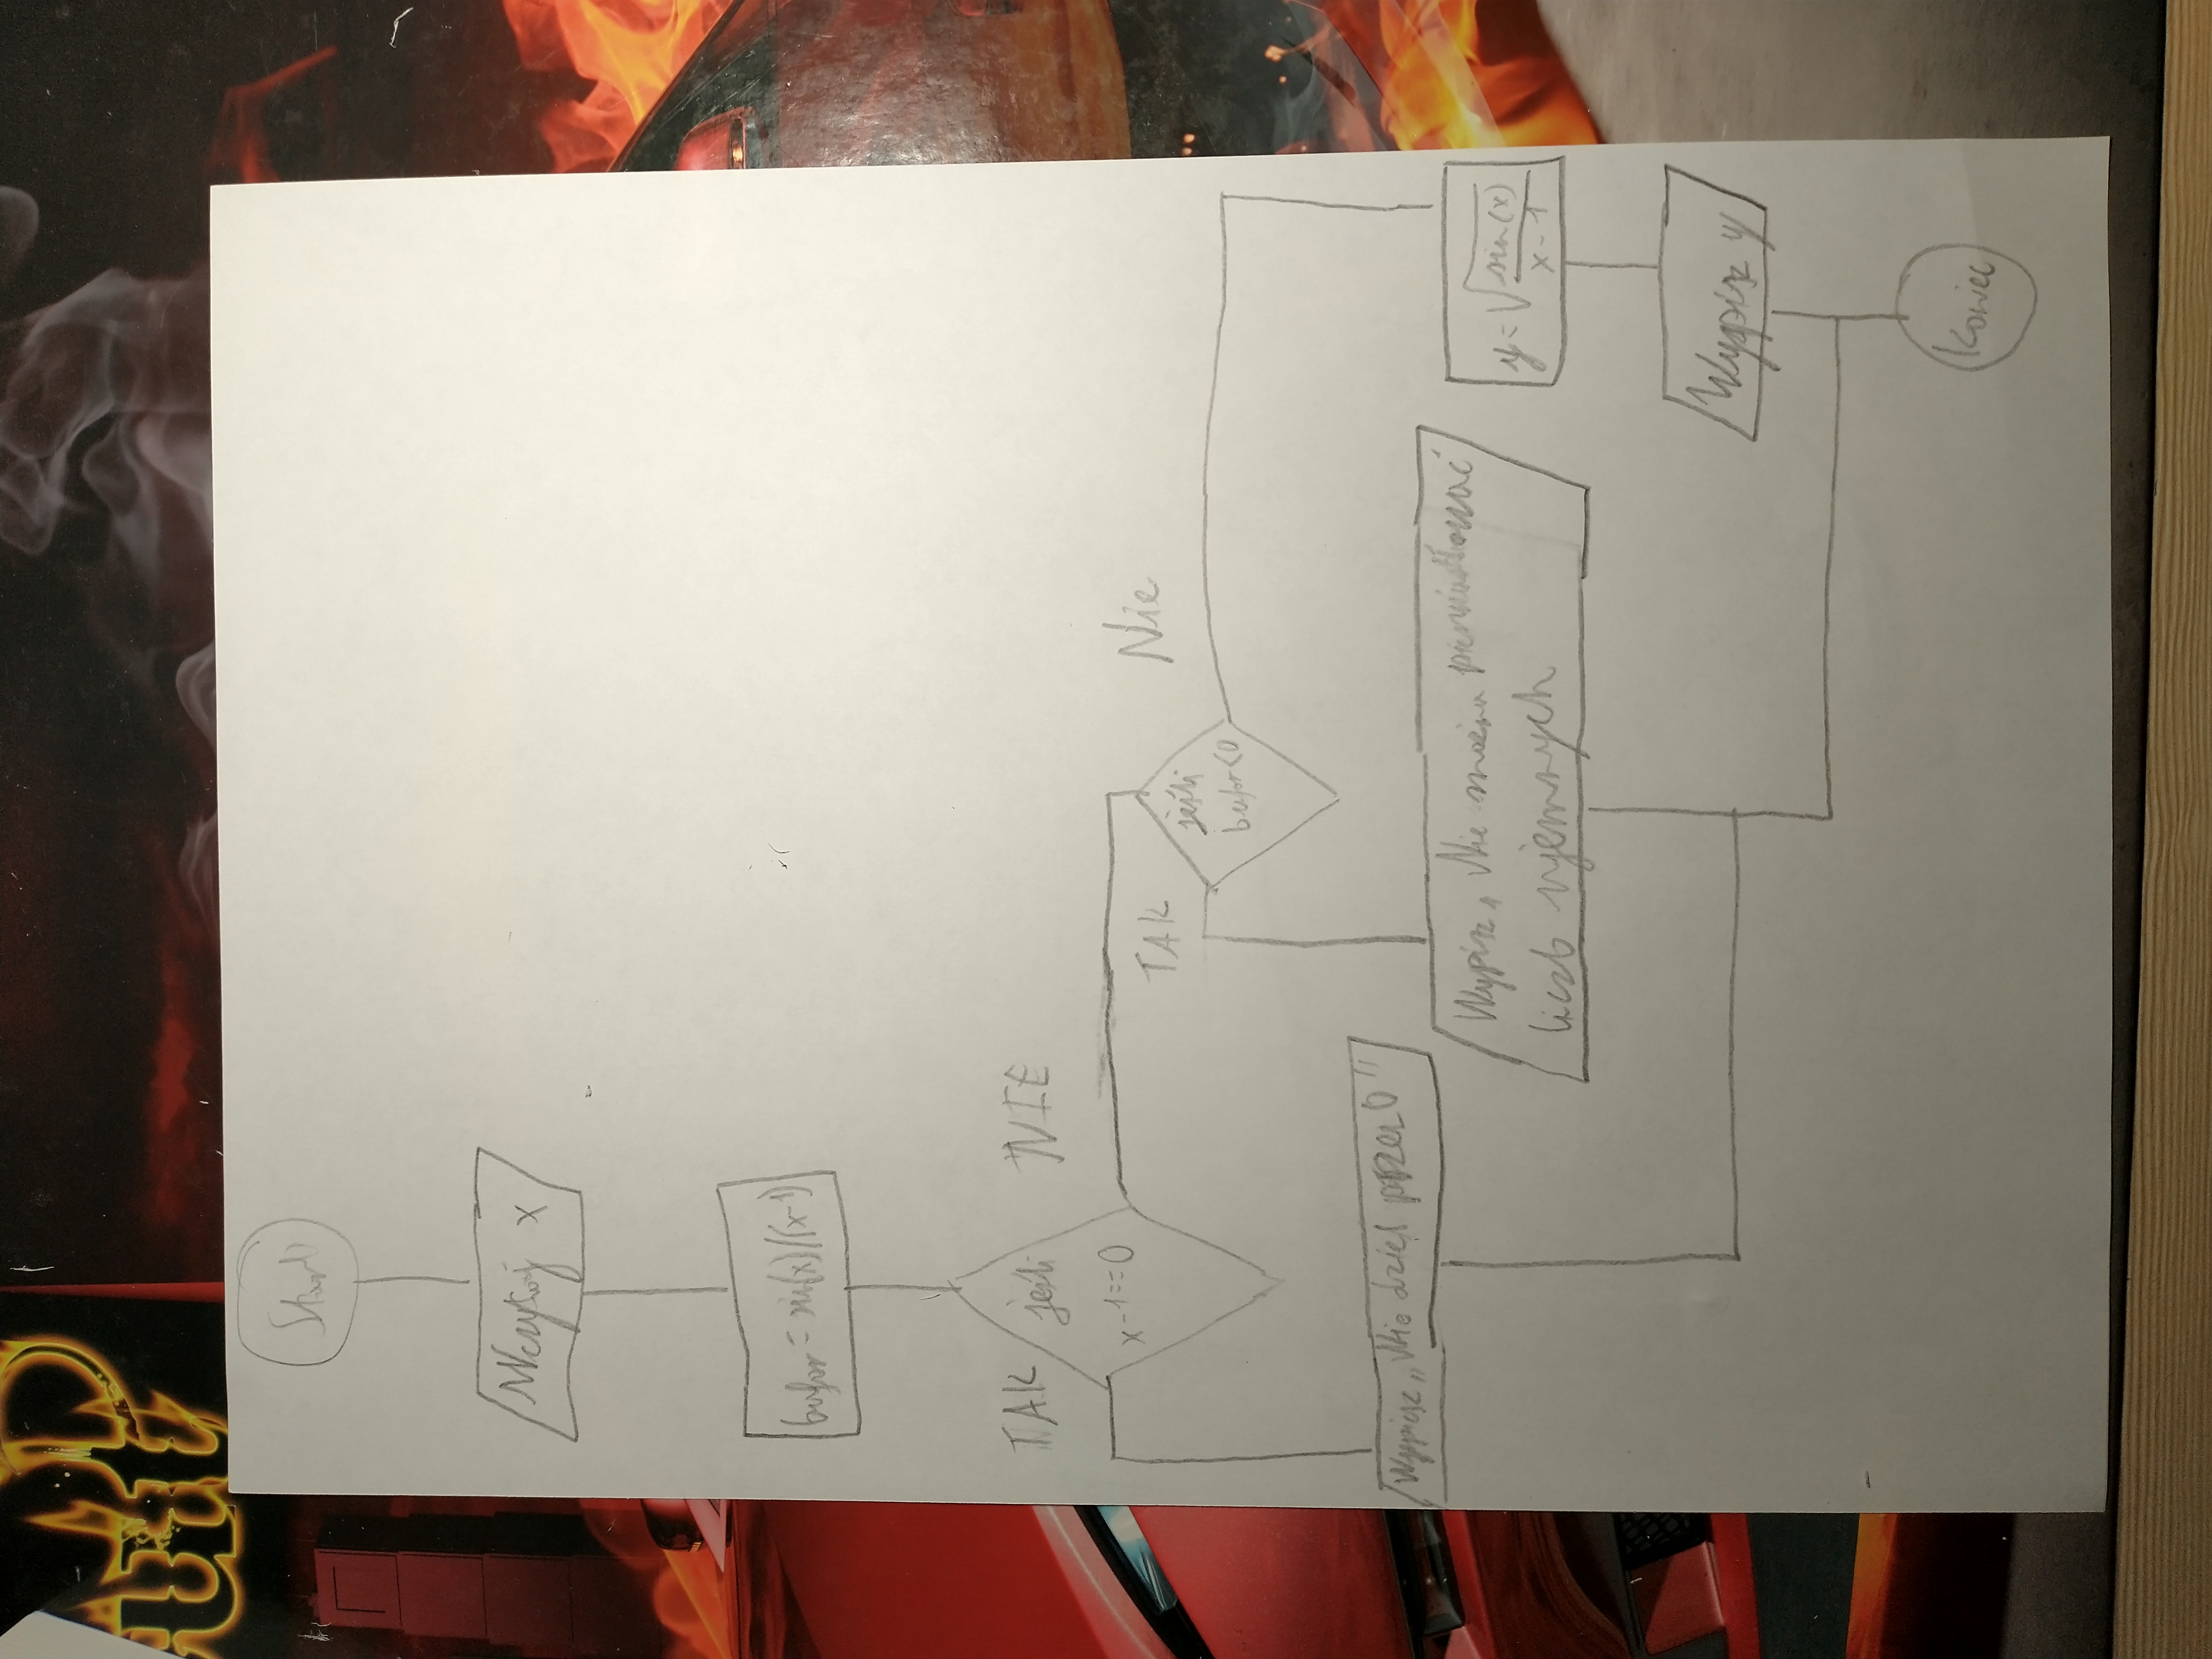 ut
Start
Wczytaj x
bufor = sin(x)/(x-1)
TAK
jeśli
x-1==0
NIE
TAK
jeśli
bufor<0
Nie
Wypisz „Nie dziel przez 0"
Wypisz „Nie można pierwiastkować
liczb ujemnych
y=√sin(x)
x-1
Wypisz y
Koniec